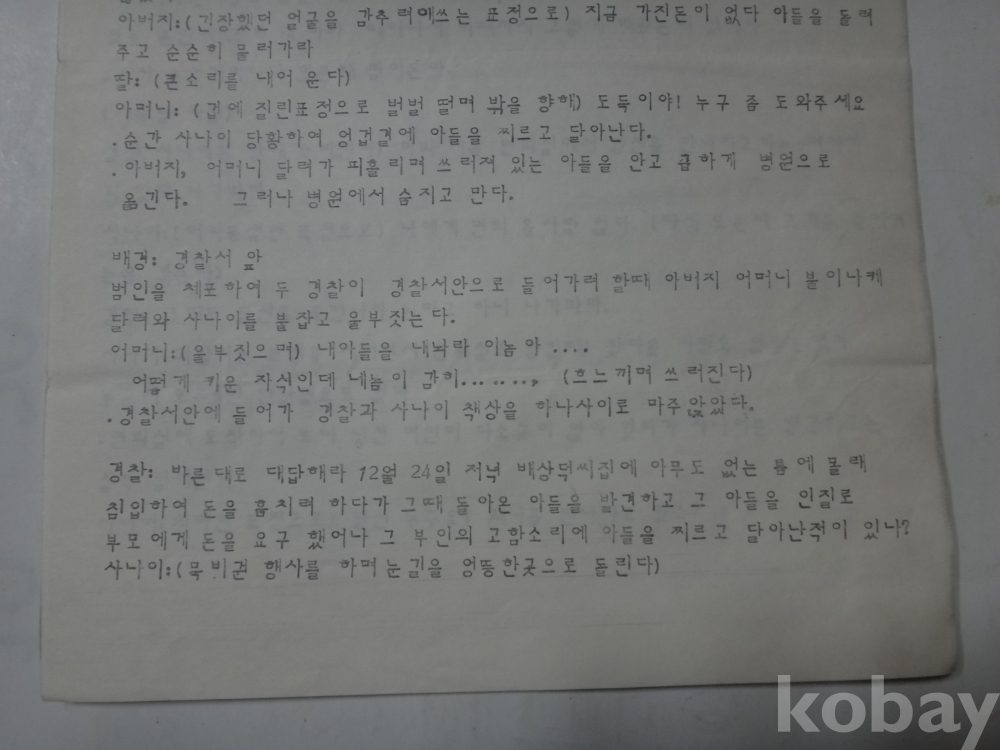 아버지:(긴장했던 얼굴을 감추려애쓰는 표정으로) 지금 가진돈이 없다 아들을 돌려
주고 순순히 물러가라
딸: (큰소리를 내어 운다)
아머니: (겁에 질린표정으로 벌벌 떨며 밖을 향해) 도둑이야! 누구 좀 도와주세요
.순간 사나이 당황하여 엉겁결에 아들을 찌르고 달아난다.
.아버지, 어머니 달려가 피흘리며 쓰러져 있는 아들을 안고 급하게 병원으로
옮긴다. 그러나 병원에서 숨지고 만다.
배경: 경찰서 앞
범인을 체포하여 두 경찰이 경찰서안으로 들어가려 할때 아버지 어머니 불이나케
달려와 사나이를 붙잡고 울부짓는다.
어머니:(울부짓으며) 내아들을 내놔라 이놈아 ....
어떻게 키운 자식인데 네놈이 감히......., (흐느끼며 쓰러진다)
.경찰서안에 들어가 경찰과 사나이 책상을 하나사이로 마주앉았다.
경찰: 바른대로 대답해라 12월 24일 저녁 배상덕씨집에 아무도 없는 틈에 몰래
침입하여 돈을 훔치려 하다가 그때 돌아온 아들을 발견하고 그 아들을 인질로
부모에게 돈을 요구 했어나 그 부인의 고함소리에 아들을 찌르고 달아난적이 있나?
사나이:(묵비권 행사를 하며 눈길을 엉뚱한곳으로 돌린다)
kobay